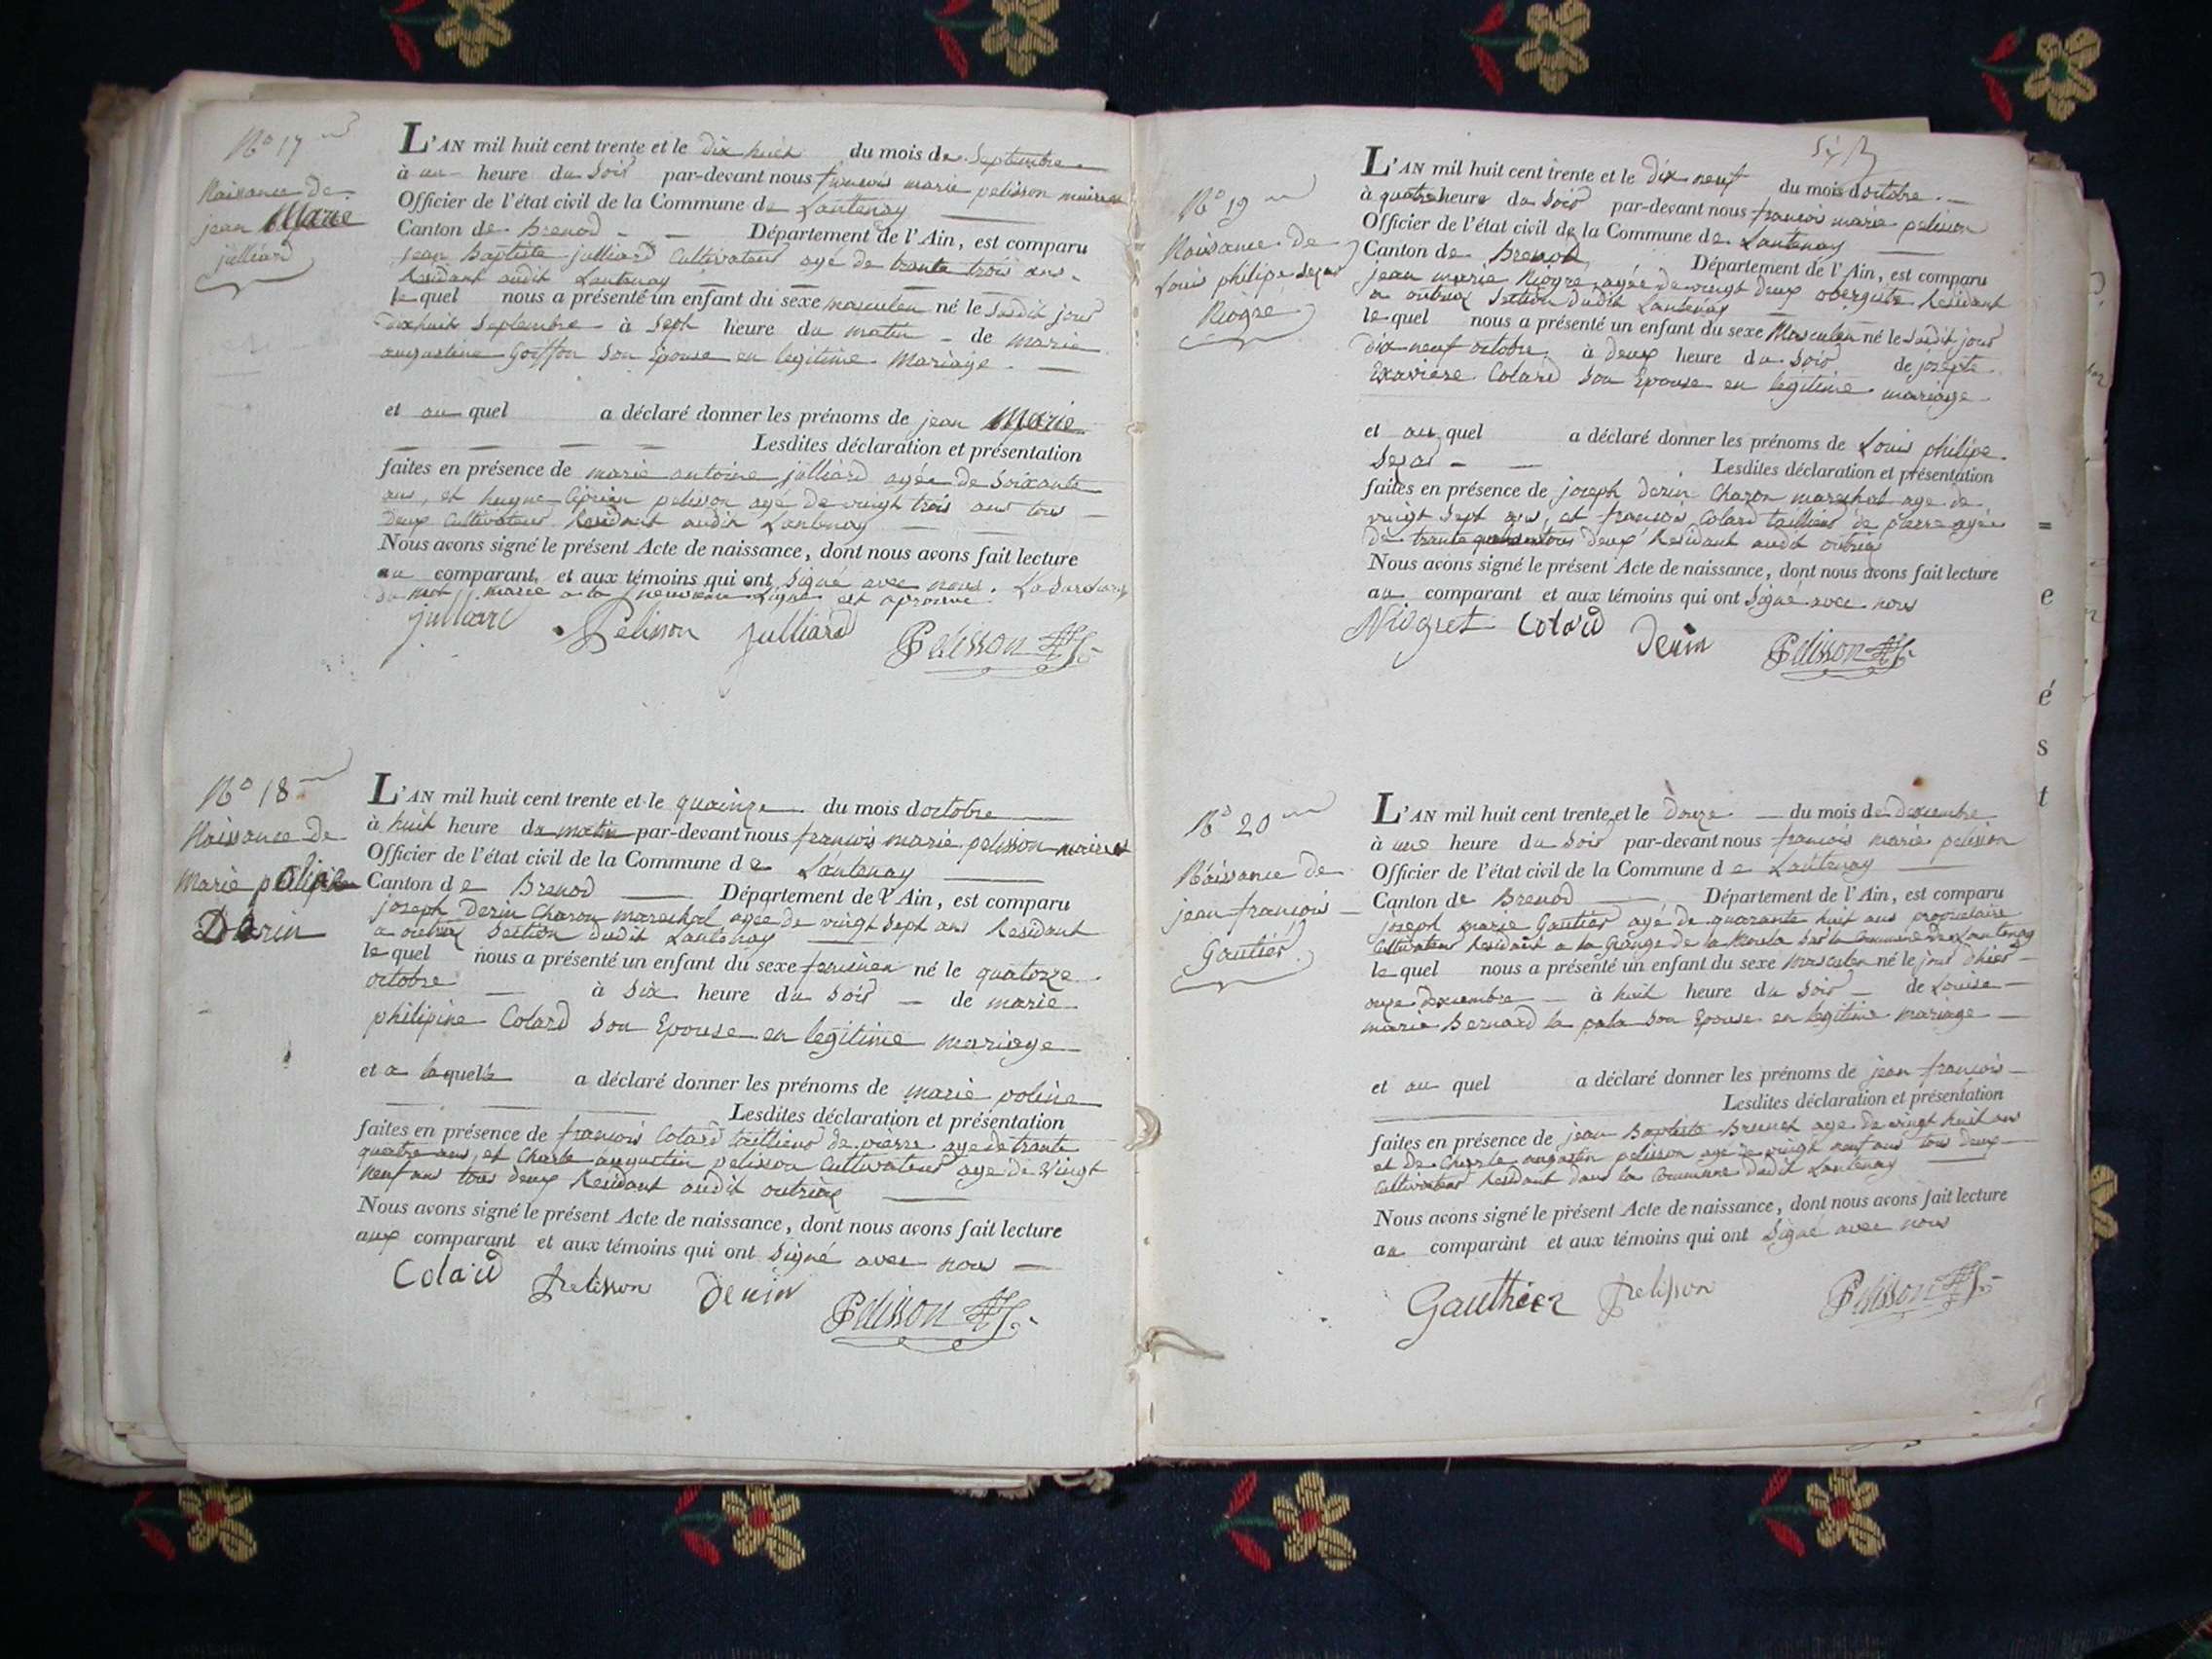 No 17
Naissance de
jean Marie
julliard
L'AN mil huit cent trente et le dix huit du mois de Septembre
à une heure du Soir par-devant nous francois marie pelisson maire et
Officier de l'état civil de la Commune de Lantenay
Canton de Brenod Département de l'Ain, est comparu
jean Baptiste julliard Cultivateur agé de trante trois ans
Residant audit Lantenay
le quel nous a présenté un enfant du sexe masculen né le Susdit jour
dixhuit Septembre à Sept heure du matin de marie
augustine Goiffon Son Epouse en legitime Mariage
et au quel a déclaré donner les prénoms de jean Marie
Lesdites déclaration et présentation
faites en présence de marie antoine julliard agée de Soixante
ans, et pelisson agé de vingt trois ans tous
deux Cultivateur Residant audit Lantenay
Nous avons signé le présent Acte de naissance, dont nous avons fait lecture
au comparant et aux témoins qui ont Signé avec nous. La Surcharge
du mot marie a la neuvieme Ligne est aprouvé
julliard Pelisson Julliard Pelisson
No 18
Naissance de
Marie poline
Derin
L'AN mil huit cent trente et le quainze du mois d octobre
à huit heure du matin par-devant nous francois marie pelisson maire et
Officier de l'état civil de la Commune de Lantenay
Canton de Brenod Département de l'Ain, est comparu
joseph Derin Charon marechal agée de vingt Sept ans Residant
a outriaz Section dudit Lantenay
le quel nous a présenté un enfant du sexe feminen né le quatorze
octobre à Six heure du Soir de marie
philipine Colard Son Epouse en legitime mariage
et a laquelle a déclaré donner les prénoms de marie poline
Lesdites déclaration et présentation
faites en présence de francois Colard taillieur de pierre age de trante
quatre ans, et Charle augustin pelisson Cultivateur age de Vingt
neuf ans tous deux Residant audit outriaz
Nous avons signé le présent Acte de naissance, dont nous avons fait lecture
aux comparant et aux témoins qui ont Signé avec nous
Colard pelisson Derin Pelisson
No 19
Naissance de
Louis philipe Sezar
Niogre
L'AN mil huit cent trente et le dix neuf du mois d octobre
à quatre heure du Soir par-devant nous francois marie pelisson
Officier de l'état civil de la Commune de Lantenay
Canton de Brenod Département de l'Ain, est comparu
jean marie Niogre, agée de vingt deux obergiste Residant
a outriaz Section dudit Lantenay
le quel nous a présenté un enfant du sexe Masculen né le Susdit jour
dix neuf octobre, à deux heure du Soir de josepte
Exaviere Colard Son Epouse en legitime mariage
et au quel a déclaré donner les prénoms de Louis philipe
Sezar Lesdites déclaration et présentation
faites en présence de joseph derin Charon mareschal age de
vingt Sept ans, et francois Colard taillieur de pierre agée
de trante tous deux Residant audit outriaz
Nous avons signé le présent Acte de naissance, dont nous avons fait lecture
au comparant et aux témoins qui ont Signé avec nous
Niogret Colard Derin Pelisson
No 20
Naissance de
jean françois
Gautier
L'AN mil huit cent trente et le Douze du mois de decembre
à une heure du Soir par-devant nous francois marie pelisson
Officier de l'état civil de la Commune de Lantenay
Canton de Brenod Département de l'Ain, est comparu
joseph marie Gautier agé de quarante huit ans propriétaire
Cultivateur Residant a la Grange de la Sur la Commune de Lantenay
le quel nous a présenté un enfant du sexe masculen né le jour d'hier
onze decembre à huit heure du Soir de Louise
marie Bernard la pala Son Epouse en legitime mariage
et au quel a déclaré donner les prénoms de jean francois
Lesdites déclaration et présentation
faites en présence de jean Baptiste Brunet age de vingt huit ans
et de Charle augustin pelisson age de vingt neuf ans tous deux
Cultivateur Residant dans la Commune dudit Lantenay
Nous avons signé le présent Acte de naissance, dont nous avons fait lecture
au comparant et aux témoins qui ont Signé avec nous
Gauthier pelisson Pelisson
=
e
é
s
t